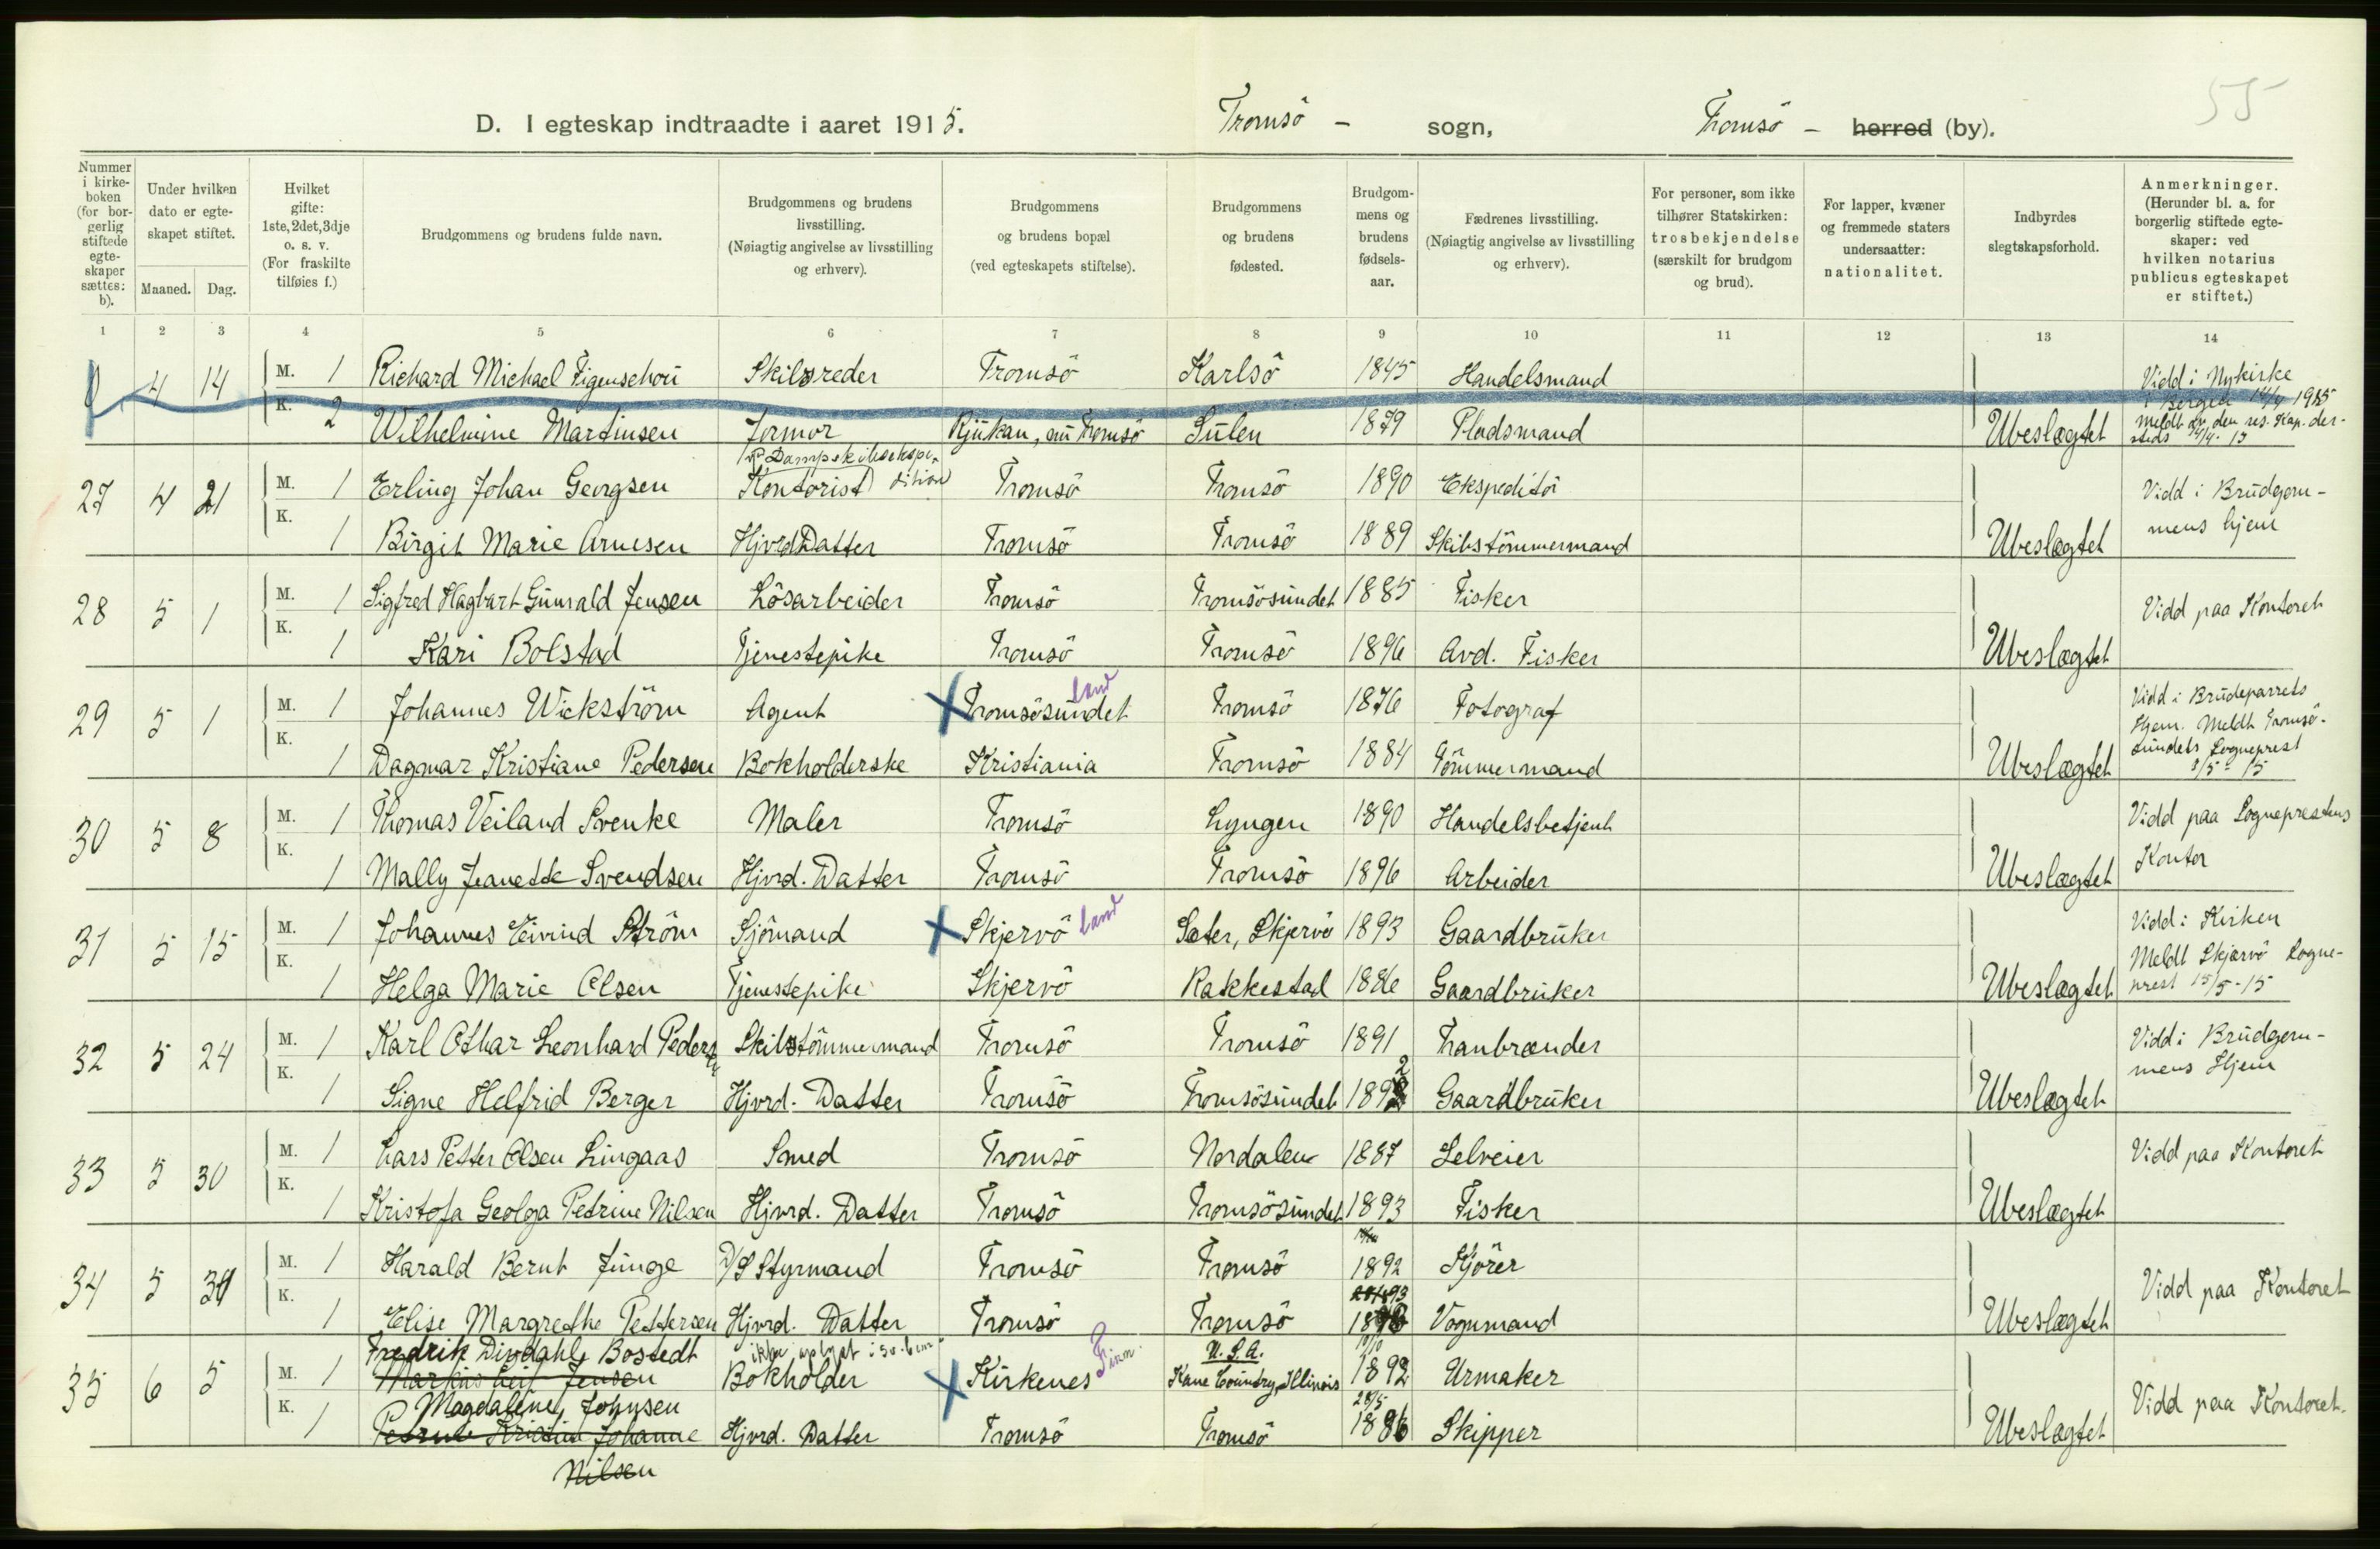 55
D. I egteskap indtraadte i aaret 1915. Tromsö - sogn, Tromsö - herred (by).
Nummer i kirkeboken (for borgerlig stiftede egteskaper sættes: b).
Under hvilken dato er egteskapet stiftet.
Maaned. Dag.
Hvilket gifte: 1ste, 2det, 3dje o. s. v. (For fraskilte tilføies f.)
Brudgommens og brudens fulde navn.
Brudgommens og brudens livsstilling. (Nøiagtig angivelse av livsstilling og erhverv).
Brudgommens og brudens bopæl (ved egteskapets stiftelse).
Brudgommens og brudens fødested.
Brudgommens og brudens fødselsaar.
Fædrenes livsstilling. (Nøiagtig angivelse av livsstilling og erhverv).
For personer, som ikke tilhører Statskirken: trosbekjendelse (særskilt for brudgom og brud).
For lapper, kvæner og fremmede staters undersaatter: nationalitet.
Indbyrdes slegtskapsforhold.
Anmerkninger. (Herunder bl. a. for borgerlig stiftede egteskaper: ved hvilken notarius publicus egteskapet er stiftet.)
1 2 3 4 5 6 7 8 9 10 11 12 13 14
0 4 14 M. 1 Richard Michael Figenschou Skibsreder Tromsö Karlsö 1845 Handelsmand Vidd i Nykirke
K. 2 Wilhelmine Martinsen Jormor Rjukan, nu Tromsö Sulen 1879 Pladsmand Ubeslægtet i Bergen 14/4 1915 meldt av den res. Kap. dersteds 14/4 - 15
27 4 21 M. 1 Erling Johan Georgsen Kontorist (ved Dampskibsekspedition) Tromsö Tromsö 1890 Ekspeditör Vidd i Brudgom-
K. 1 Birgit Marie Arnesen Hjvrd Datter Tromsö Tromsö 1889 Skibstömmermand Ubeslægtet mens hjem
28 5 1 M. 1 Sigfred Hagbart Gunvald Jensen Lösarbeider Tromsö Tromsösundet 1885 Fisker Vidd paa Kontoret
K. 1 Kari Bolstad Tjenestepike Tromsö Tromsö 1896 Avd. Fisker Ubeslægtet
29 5 1 M. 1 Johannes Wickström Agent X Tromsösundet Land Tromsö 1876 Fotograf Vidd i Brudeparrets Hjem. Meldt Tromsö-
K. 1 Dagmar Kristiane Pedersen Bokholderske Kristiania Tromsö 1884 Tömmermand Ubeslægtet sundets Sogneprest 8/5 - 15
30 5 8 M. 1 Thomas Veiland Svenke Maler Tromsö Lyngen 1890 Handelsbetjent Vidd paa Sogneprestens
K. 1 Mally Jeanette Svendsen Hjvrd. Datter Tromsö Tromsö 1896 Arbeider Ubeslægtet Kontor
31 5 15 M. 1 Johannes Eivind Ström Sjömand X Skjervö Land Sater, Skjervö 1893 Gaardbruker Vidd i Kirken
K. 1 Helga Marie Olsen Tjenestepike Skjervö Rakkestad 1886 Gaardbruker Ubeslægtet Meldt Skjærvö Sogneprest 15/5 - 15
32 5 24 M. 1 Karl Othar Leonhard Pedersen Skibstömmermand Tromsö Tromsö 1891 Tranbrænder Vidd i Brudgom-
K. 1 Signe Helfrid Berger Hjvrd. Datter Tromsö Tromsösundet 1892 Gaardbruker Ubeslægtet mens Hjem
33 5 30 M. 1 Lars Petter Olsen Lingaas Smed Tromsö Nordalen 1887 Selveier Vidd paa Kontoret
K. 1 Kristofa Geolga Petrine Nilsen Hjvrd. Datter Tromsö Tromsösundet 1893 Fisker Ubeslægtet
34 5 31 M. 1 Harald Bernt Junge D/S Styrmand Tromsö Tromsö 1892 Kjörer Vidd paa Kontoret
K. 1 Elise Margrethe Pettersen Hjvrd. Datter Tromsö Tromsö Vognmand Ubeslægtet
35 6 5 M. 1 Fredrik Dirdahl Bostedt Markus Leif Jensen Bokholder X Kirkenes Finn. U.S.A. Kane Country, Illinois 1892 Urmaker Vidd paa Kontoret.
K. 1 Magdalene Johnsen Petrule Kristine Johanne Nilsen Hjvrd. Datter Tromsö Tromsö 28/5 1886 Skipper Ubeslægtet